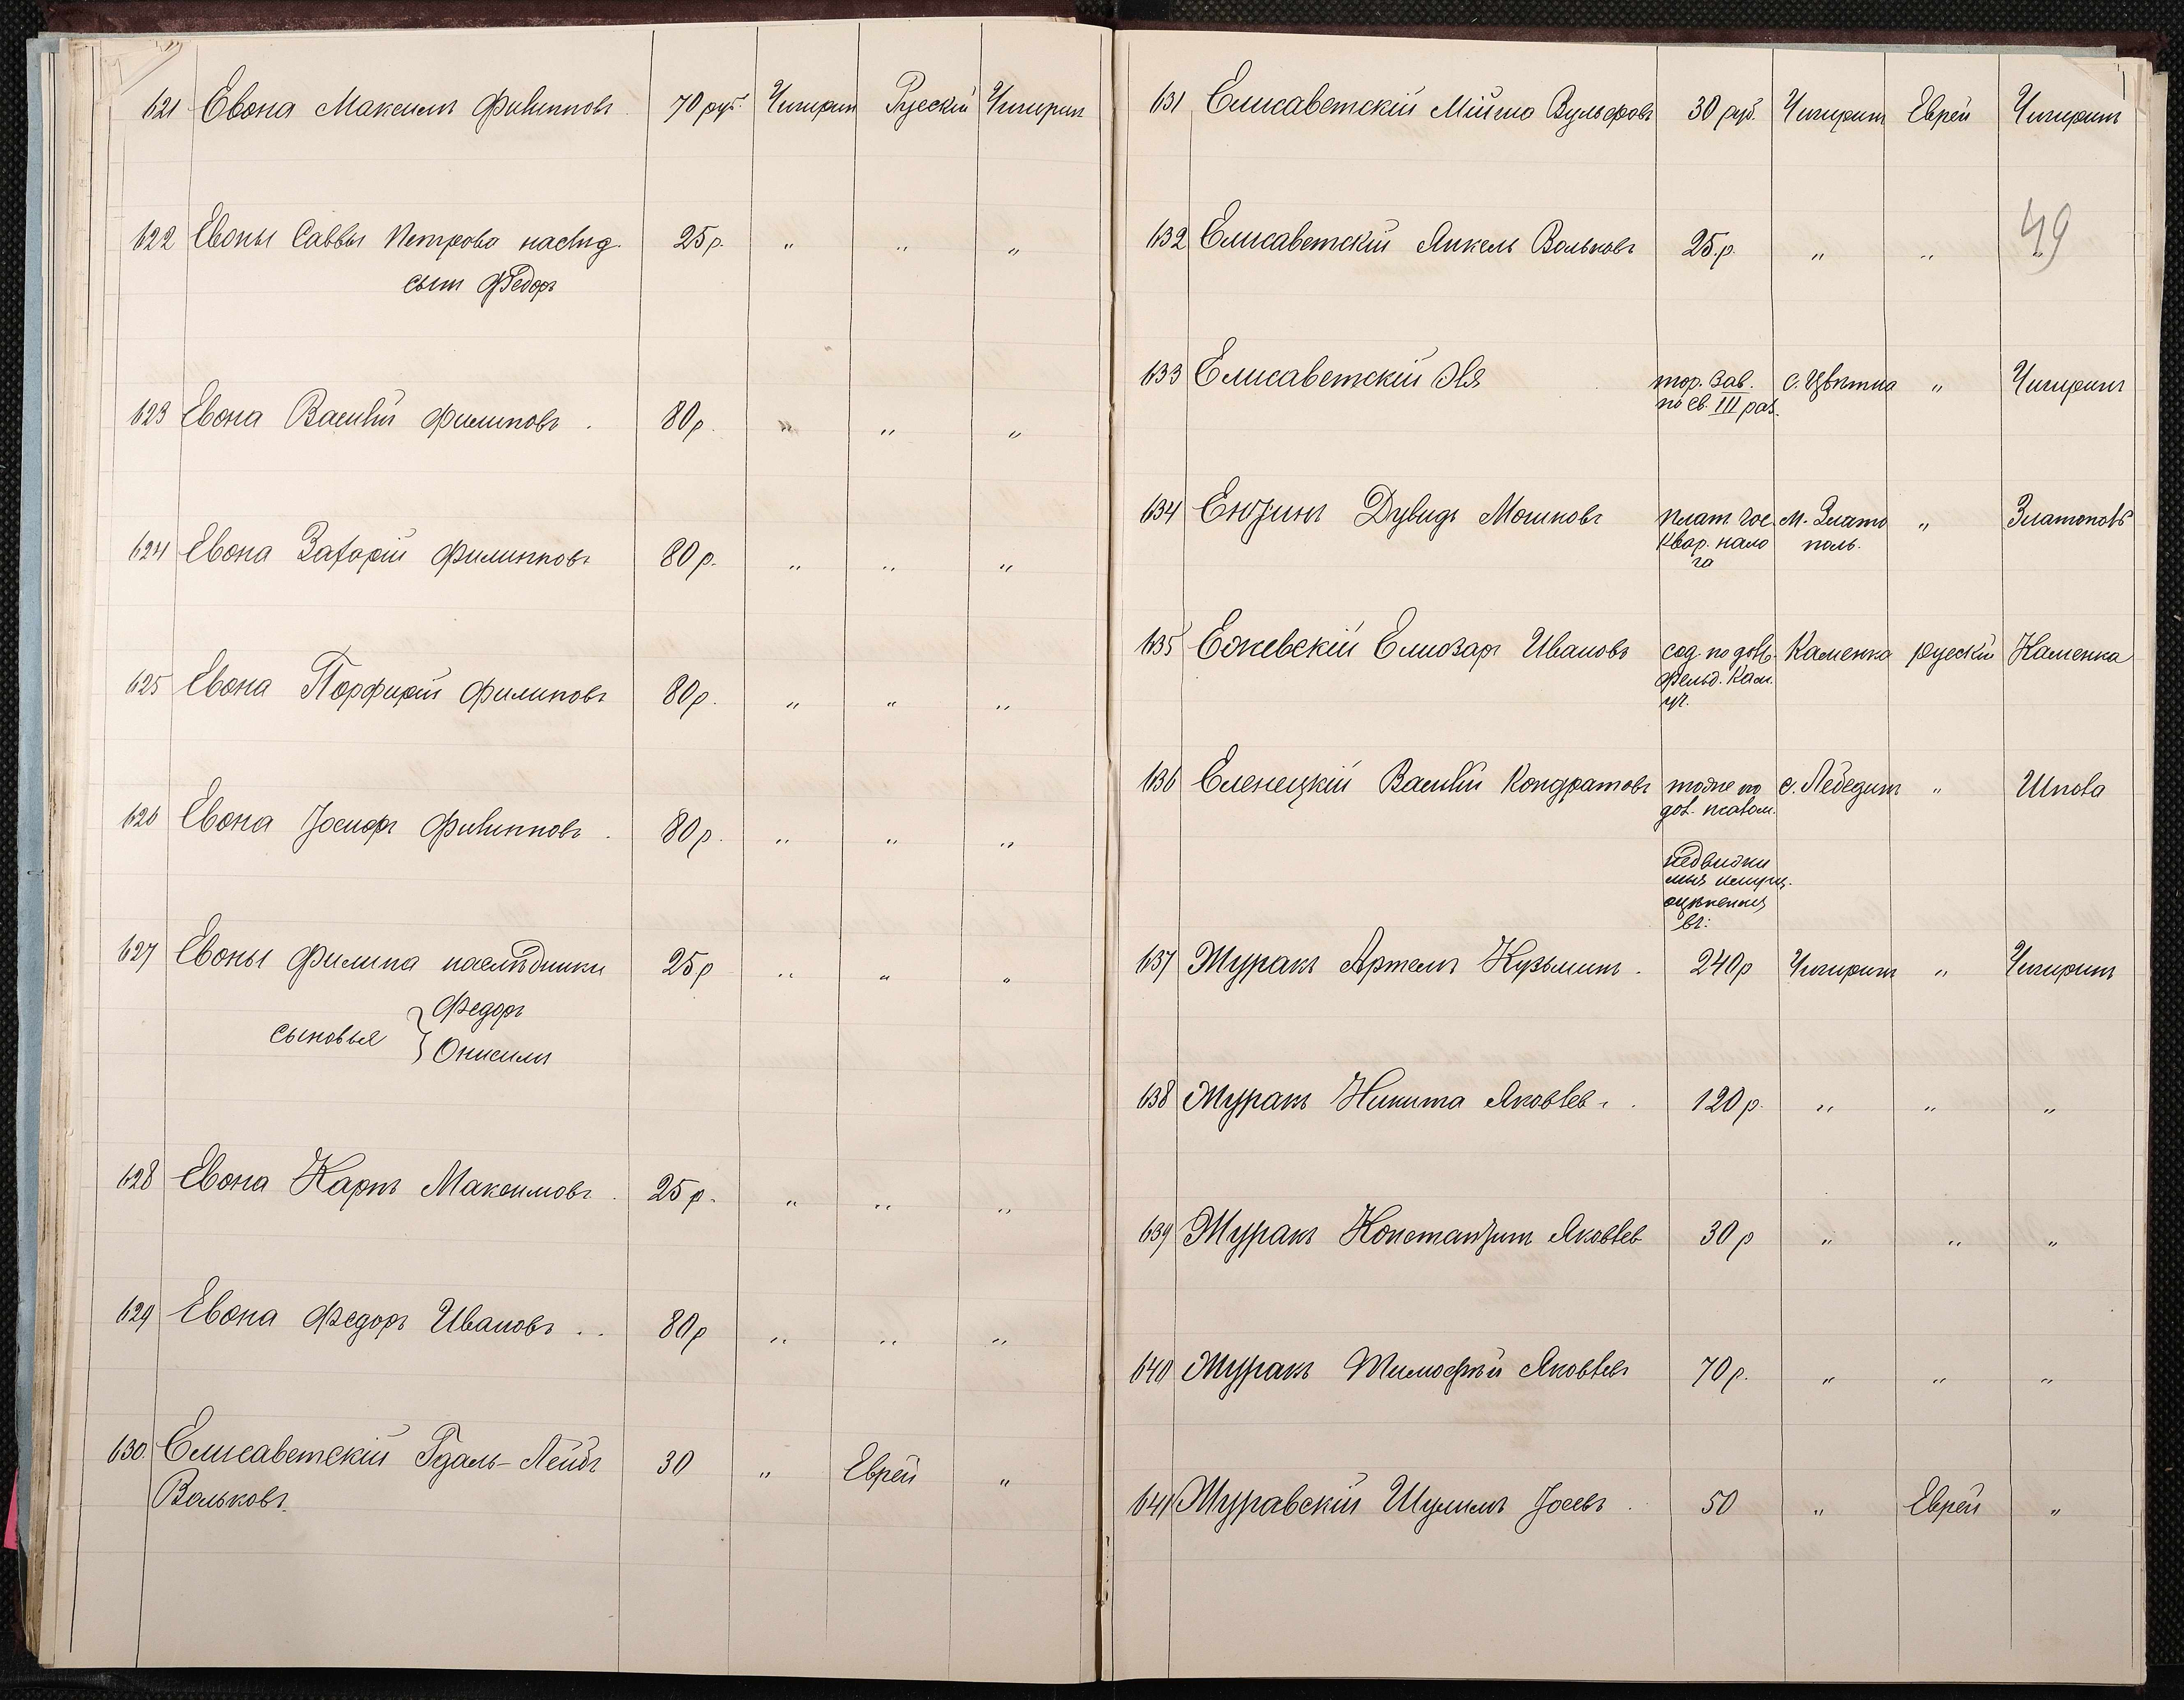 621 Евона Максимъ Филипповъ 70 руб. Чигирин Русскій Чигирин
622 Евоны Саввы Петрова наслѣд. 25 р. „ „ „
сынъ Ѳедоръ
623 Евона Василій Филиповъ 80 р. „ „ „
624 Евона Захарій Филипповъ 80 р. „ „ „
625 Евона Порфирій Филиповъ 80 р. „ „ „
626 Евона Іосифъ Филипповъ 80 р. „ „ „
627 Евоны Филипа наслѣдники 25 р „ „ „
сыновья { Ѳедоръ
Онисимъ
628 Евона Карпъ Максимовъ 25 р. „ „ „
629 Евона Ѳедоръ Ивановъ 80 р „ „ „
630. Елисаветскій Гдаль-Лейбъ 30 „ Еврей „
Вольковъ.
49
631 Елисаветскій Вульфовъ 30 руб. Чигиринъ Еврей Чигиринъ
632 Елисаветскій Янкель Вольковъ 25 р. „ „ „
633 Елисаветскій Эля тор. зав. с. Цвѣтна „ Чигиринъ
по св. III раз.
634 Дувидъ Мошковъ плат. гос. м. Злато „ Златополь
квар. нало поль.
га
635 Ежевскій Елиозаръ Ивановъ сод. по довѣ. Каменка русскій Каменка
Кам.
636 Еленецкій Василій Кондратовъ тоже по с. Лебединъ „ Шпола
дов.
недвижи
мыя имущ.
оцѣненныя
въ:
637 Журакъ Артемъ Кузьминъ 240 р Чигиринъ „ Чигиринъ
638 Журакъ Никита Яковлев. 120 р. „ „ „
639 Журакъ Константинъ Яковлев 30 р „ „ „
640 Журакъ Тимофѣй Яковлевъ 70 р. „ „ „
641 Журавскій Шулимъ Іосевъ 50 „ Еврей „